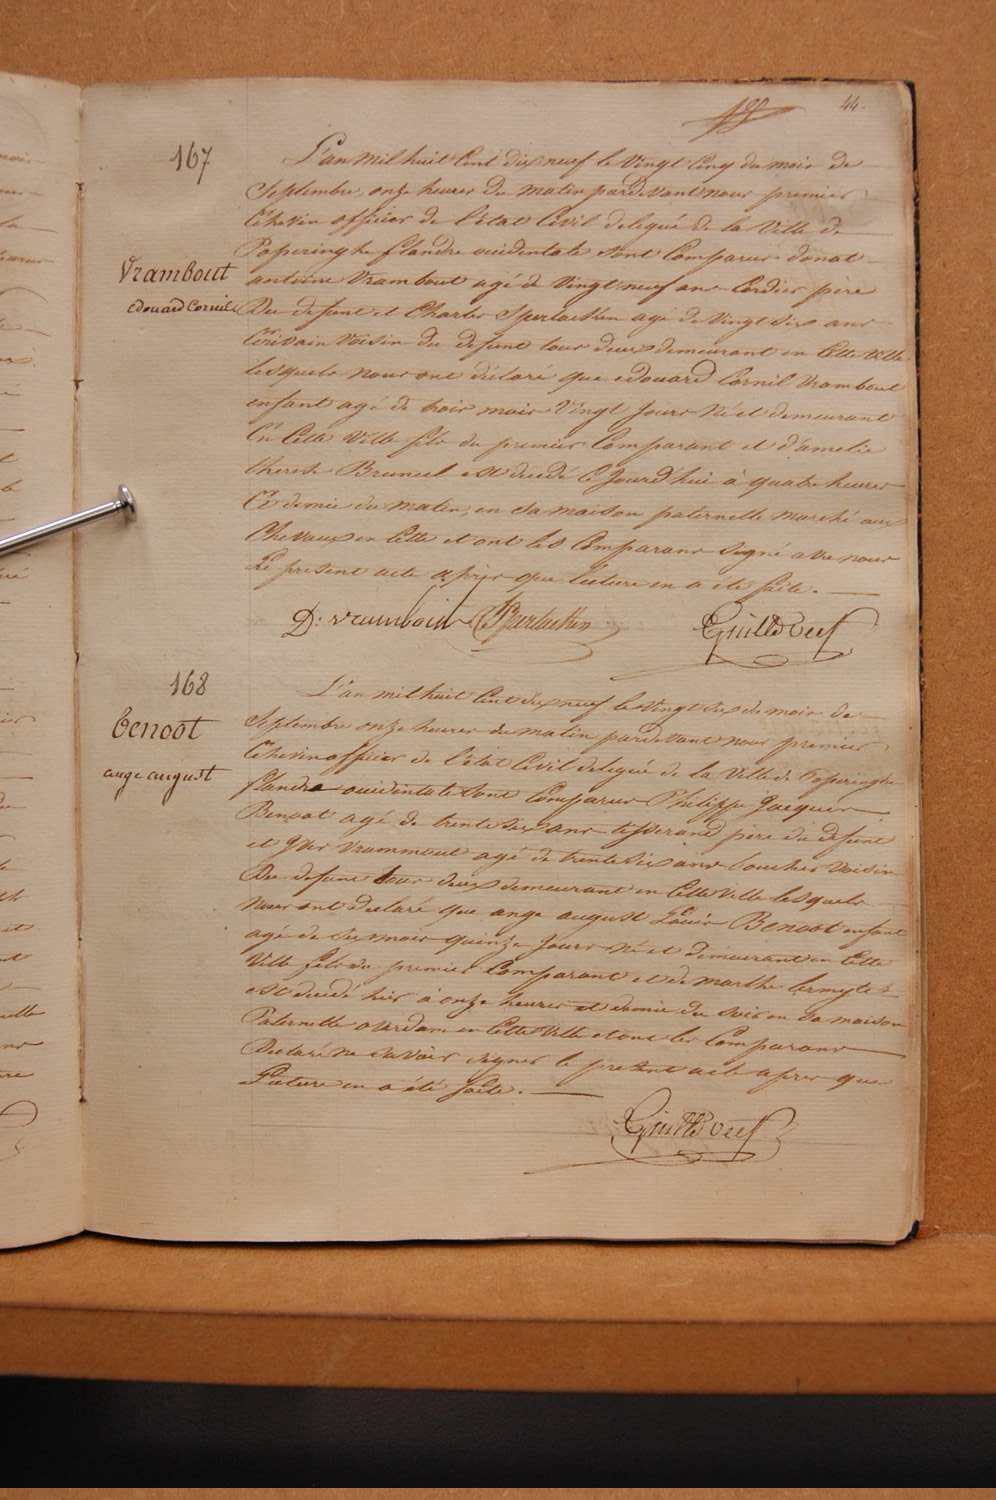 44.
167
Vrambout
edouard Cornil
L'an mil huit Cent dix neuf le vingt cinq du mois de
Septembre, onze heures du matin pardevant nous premier
Echevin officier de l'état Civil delegué de la Ville de
Poperinghe flandre occidentale sont Comparus donat
antoine Vrambout agé de Vingt neuf ans Cordier père
Du defunt et Charles agé de Vingt six ans
Ecrivain Voisin du defunt tous deux demeurant en Cette Ville
lesquels nous ont déclaré que edouard Cornil Vrambout
enfant agé de trois mois Vingt Jours né et demeurant
En Cette Ville fils du premier Comparant et d'amelie
therese Bruneel est decedé Ce Jourd'hui à quatre heures
Et demie du matin, en sa maison paternelle marché aux
Chevaux en Cette et ont les Comparans signé avec nous
Le present acte après que lecture en a été faite.
D: vrambout
168
Benoot
ange august
L'an mil huit Cent dix neuf le Vingt six du mois de
Septembre onze heures du matin pardevant nous premier
Echevin officier de l'état Civil delegué de la Ville de Poperinghe
flandre occidentale sont Comparus Philippe Jacques
Benoot agé de trente six ans tisserand père du defunt
et Vrammout agé de trente six ans Voisin
Du defunt tous deux demeurant en Cette Ville lesquels
nous ont declaré que ange august Louis Benoot enfant
agé de six mois quinze Jours né et demeurant en Cette
Ville fils du premier Comparant et de marthe Lermyte
est decedé hier à onze heures et demie du soir en sa maison
Paternelle en Cette Ville et ont les Comparans
Declaré ne savoir signer le present acte apres que
Lecture en a été faite.